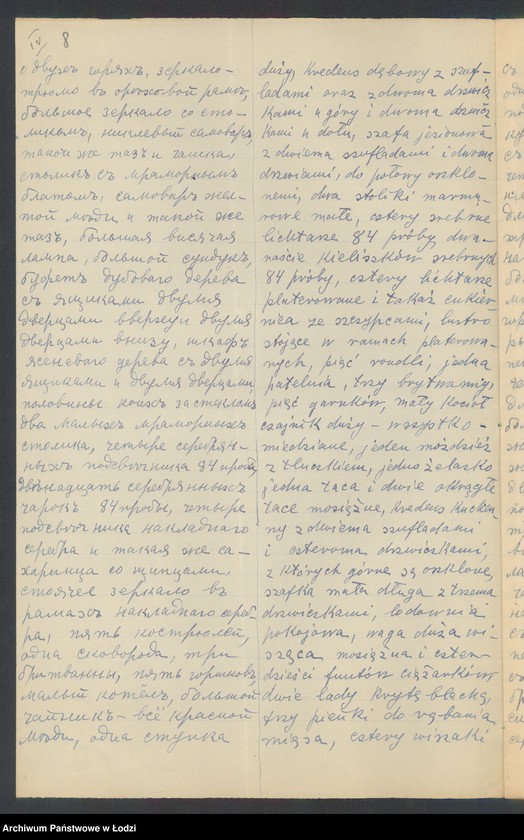 IV 8
о двухъ горяхъ, зеркало-
трюмо въ орѣховой рамѣ,
большое зеркало со сто-
ликомъ, никлевый самоваръ,
такой же тазъ и чашка,
столикъ съ мраморнымъ
блатомъ, самоваръ жел-
той мѣди и такой же
тазъ, большая висячая
лампа, большой сундукъ,
буфетъ дубоваго дерева
съ ящиками двумя
дверцами вверху и двумя
дверцами внизу, шкафъ
ясеневаго дерева съ двумя
ящиками и двумя дверцами
половины коихъ застеклены
два малыхъ мраморныхъ
столика, четыре серебрян-
ныхъ подсвѣчника 84 пробы,
двѣнадцать серебрянныхъ
чарокъ 84 пробы, четыре
подсвѣчника накладнаго
серебра и такая же са-
харница со щипцами,
стоячее зеркало въ
рамахъ накладнаго сереб-
ра, пять кострюлей,
одна сковорода, три
бритванны, пять горшковъ,
малый котелъ, большой
чайникъ – всё красной
мѣди, одна ступка
duży, kredens dębowy z szuf-
ladami oraz z dwoma drzwicz-
kami u góry i dwoma drzwicz-
kami u dołu, szafa jesionowa
z dwiema szufladami i dwoma
drzwiami, do połowy oszklo-
nemi, dwa stoliki marmu-
rowe małe, cztery srebrne
lichtarze 84 próby, dwa-
naście kieliszków srebrnych
84 próby, cztery lichtarze
platerowane i takaż cukier-
nica ze szczypcami, lustro
stojące w ramach platerowa-
nych, pięć rondli, jedna
patelnia, trzy brytwanny,
pięć garnków, mały kocioł
czajnik duży – wszystko –
miedziane, jeden moździeż
z tłuczkiem, jedno żelazko
jedna taca i dwie okrągłe
tace mosiężne, kredens kuchen-
ny z dwiema szufladami
i czteroma drzwiczkami,
z których górne są oszklone,
szafka mała długa z trzema
drzwiczkami, lodownia
pokojowa, waga duża wi-
sząca mosiężna i czter-
dzieści funtów ciężarków
dwie lady kryte blachą,
trzy pieńki do rąbania
mięsa, cztery wieszaki
Archiwum Państwowe w Łodzi